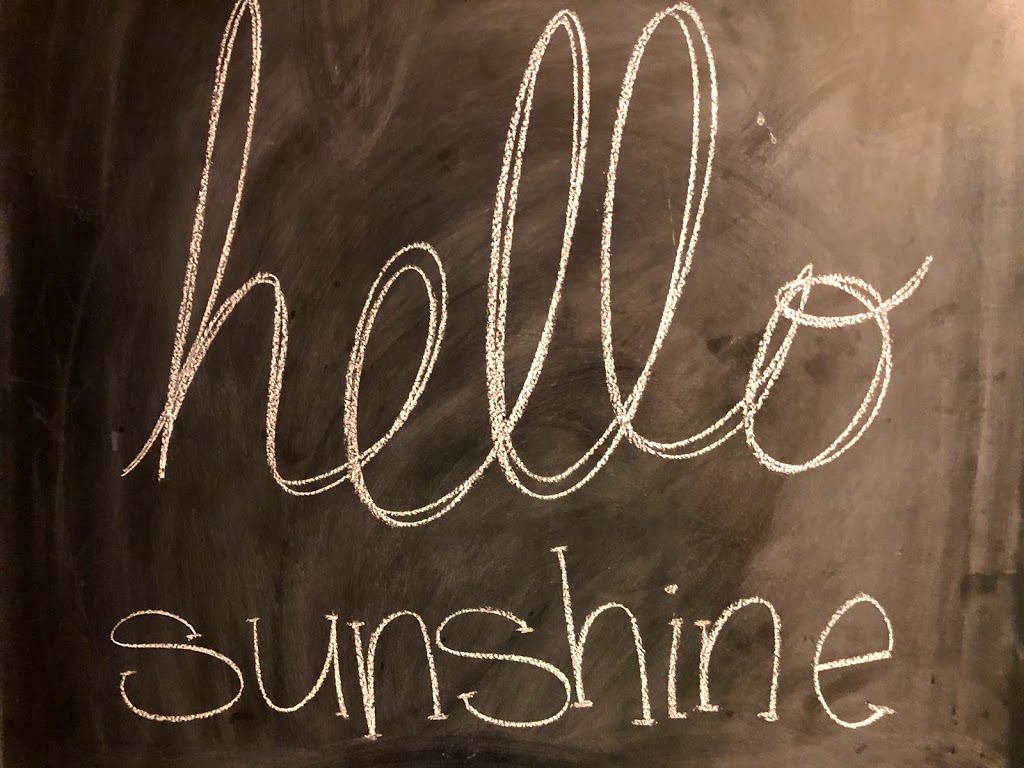 hello
sunshine